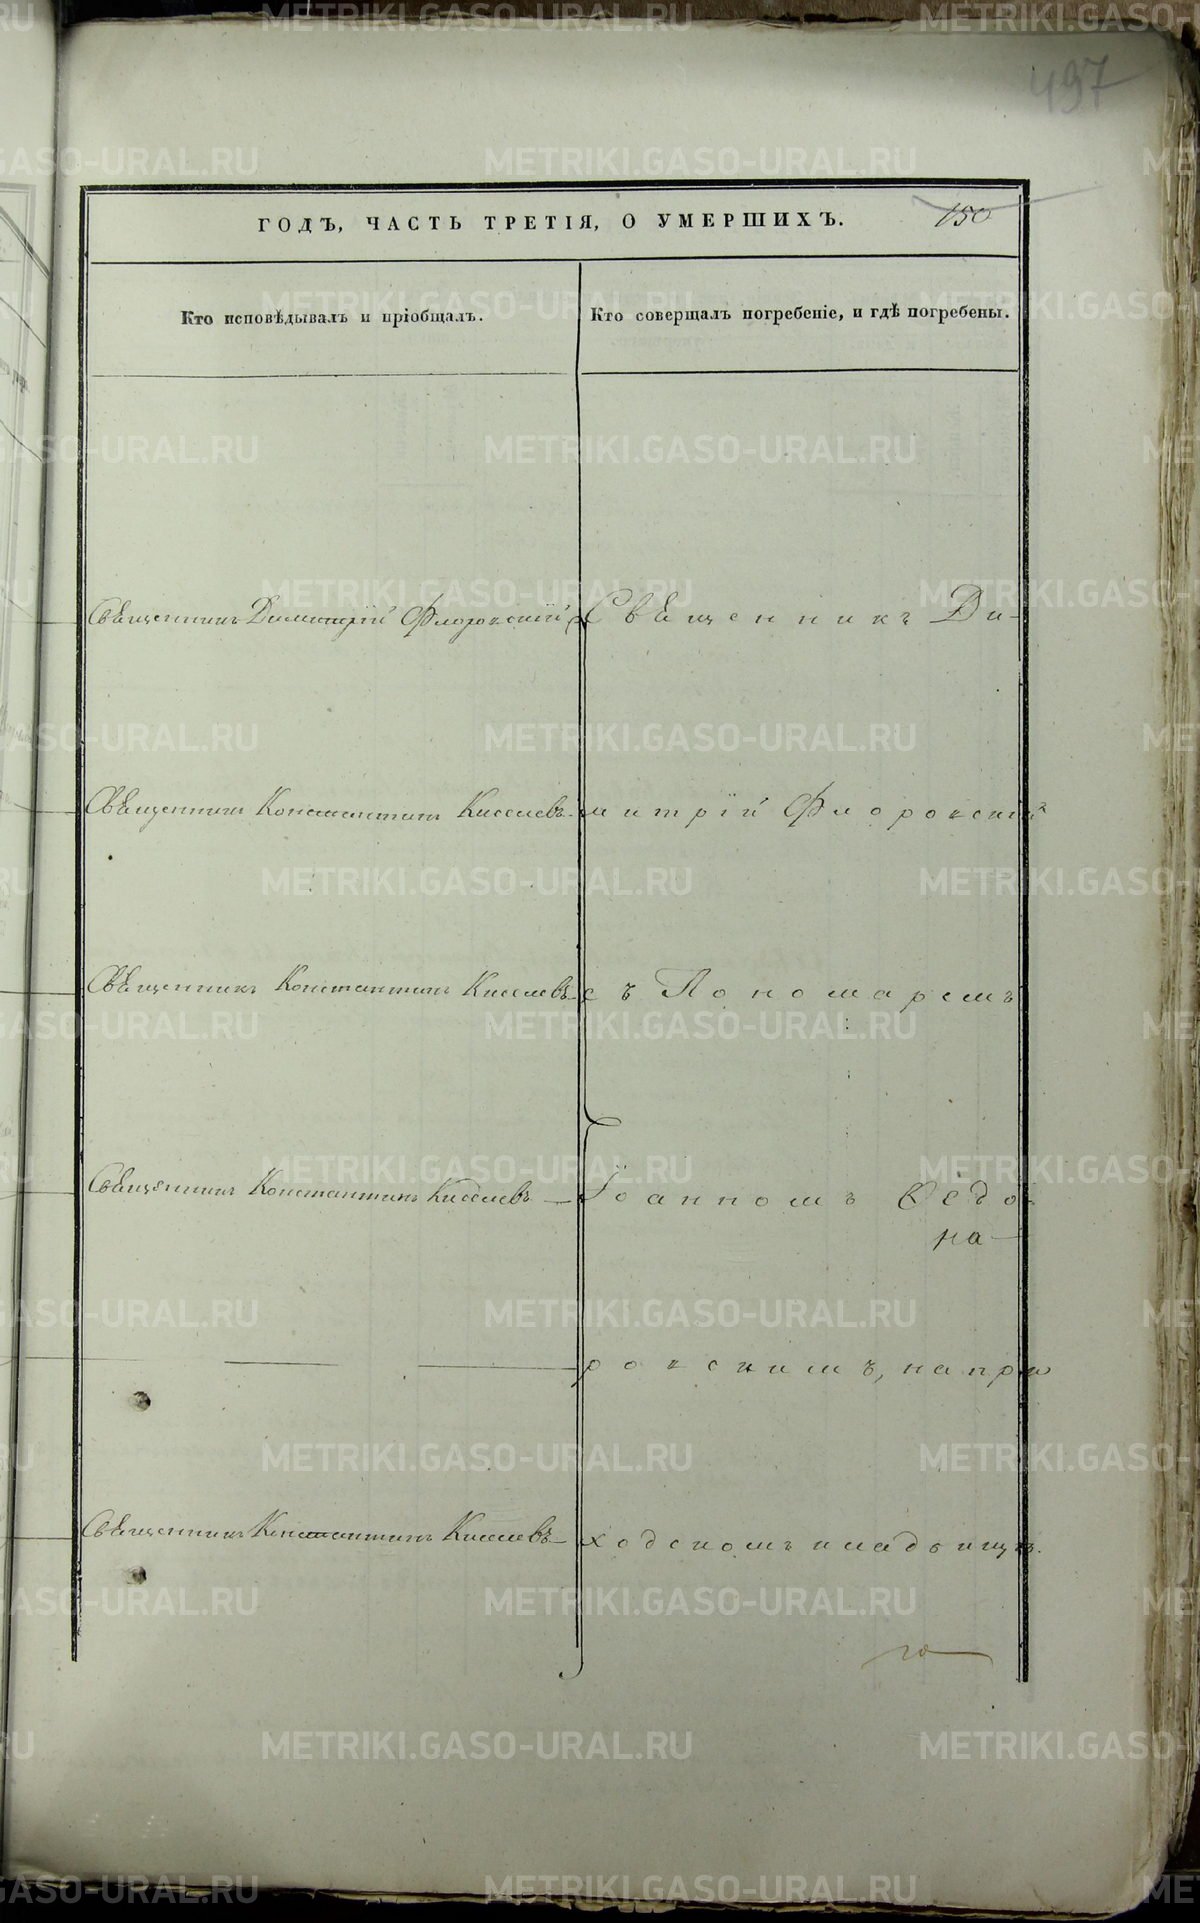 497
ГОДЪ, ЧАСТЬ ТРЕТІЯ, О УМЕРШИХЪ.
150
Кто исповѣдывалъ и пріобщалъ.
Кто совершалъ погребеніе, и гдѣ погребены.
Свѣщенникъ Димитрій Флоровскій
Свѣщенникъ Ди-
Свѣщенникъ Константинъ Киселевъ
митрій Флоровскій
Свѣщенникъ Константинъ Киселевъ
съ Пономаремъ
Свѣщенникъ Константинъ Киселевъ
Іоанномъ Ѳедо-
на
ровскимъ, на при
Свѣщенникъ Константинъ Киселевъ
ходскомъ кладбищѣ.
METRIKI.GASO-URAL.RU